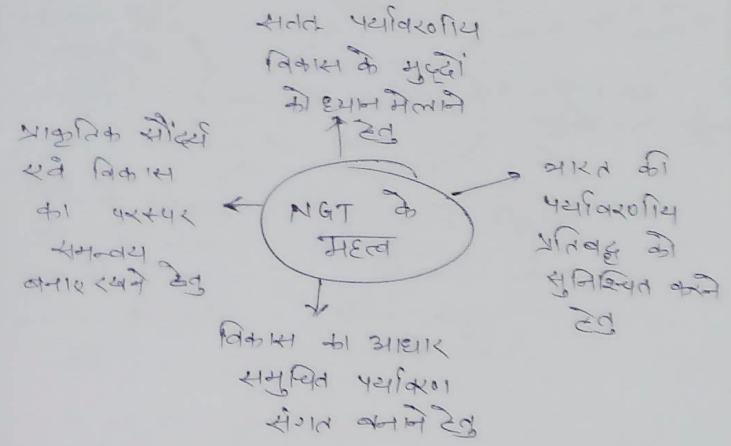 सतत पर्यावरणीय
विकास के मुद्दों
को ध्यान मे लाने
हेतु
प्राकृतिक सौंदर्य
एवं विकास
का परस्पर
समन्वय
बनाए रखने हेतु
NGT के
महत्व
भारत की
पर्यावरणीय
प्रतिबद्ध को
सुनिश्चित करने
हेतु
विकास का आधार
समुचित पर्यावरण
संगत बनाने हेतु